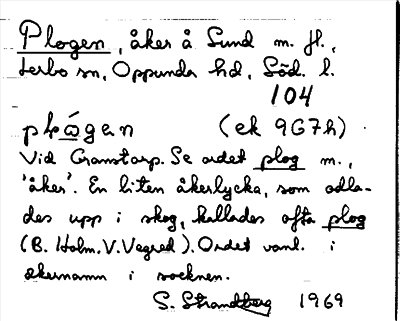 Plogen, åker å Sund m. fl.,
Lerbo sn, Oppunda hd, Söd. l.
104
pɫǻgen (ek 9G7h).
Vid Cramstorp. Se ordet plog m.,
'åker'. En liten åkerlycka, som odla-
des upp i skog, kallades ofta plog
(B. Holm. V. Vegred). Ordet vanl. i
åkernamn i socknen.
S. Strandberg 1969